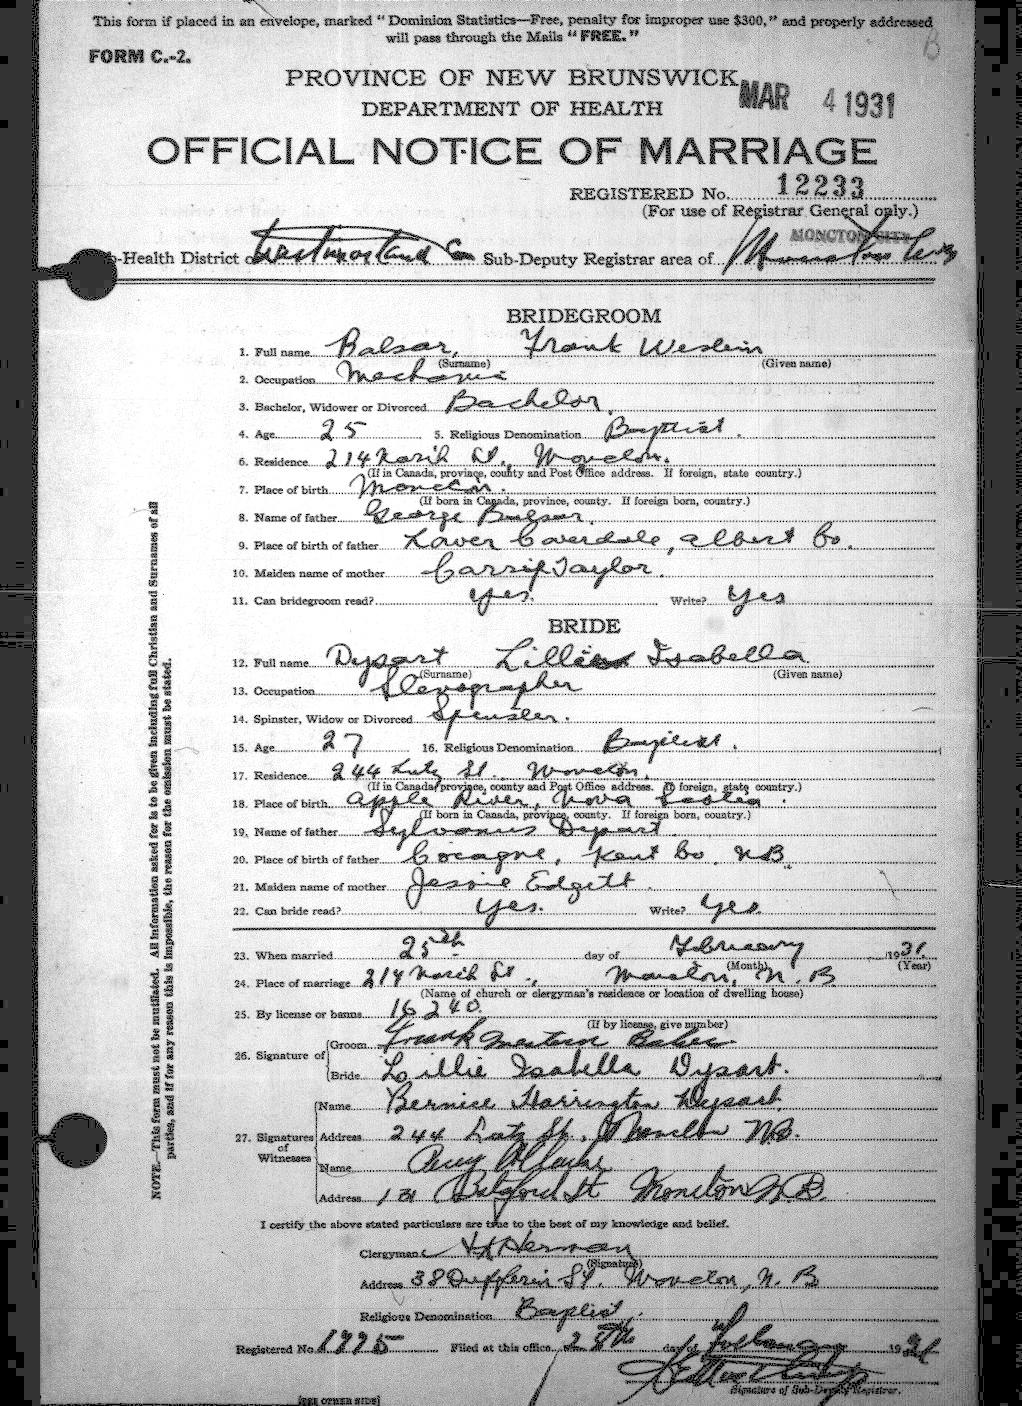 This form if placed in an envelope, marked "Dominion Statistics—Free, penalty for improper use $300," and properly addressed
will pass through the Mails "FREE."
B
FORM C.-2.
PROVINCE OF NEW BRUNSWICK
MAR 4 1931
DEPARTMENT OF HEALTH
OFFICIAL NOTICE OF MARRIAGE
REGISTERED No. 12233
(For use of Registrar General only.)
MONCTON CITY
-Health District o Westmorland Co Sub-Deputy Registrar area of Moncton City
BRIDEGROOM
1. Full name Balsor, Frank Westein
(Surname) (Given name)
2. Occupation Mechanic
3. Bachelor, Widower or Divorced Bachelor.
4. Age 25 5. Religious Denomination Baptist.
6. Residence 214 North St., Moncton.
(If in Canada, province, county and Post Office address. If foreign, state country.)
7. Place of birth Moncton.
(If born in Canada, province, county. If foreign born, country.)
8. Name of father George Balsor.
9. Place of birth of father Lower Coverdale, Albert Co.
10. Maiden name of mother Carrie Taylor.
11. Can bridegroom read? yes. Write? yes
BRIDE
12. Full name Dysart Lillie Isabella
(Surname) (Given name)
13. Occupation Stenographer
14. Spinster, Widow or Divorced Spinster.
15. Age 27 16. Religious Denomination Baptist.
17. Residence 244 Lutz St. Moncton.
(If in Canada, province, county and Post Office address. If foreign, state country.)
18. Place of birth Apple River, Nova Scotia.
(If born in Canada, province, county. If foreign born, country.)
19. Name of father Sylvanus Dysart.
20. Place of birth of father Cocagne, Kent Co. N.B.
21. Maiden name of mother Jessie Edgett.
22. Can bride read? yes. Write? yes.
23. When married 25th day of February 1931.
(Month) (Year)
24. Place of marriage 214 North St., Moncton, N.B
(Name of church or clergyman's residence or location of dwelling house)
25. By license or banns 16240.
(If by license, give number)
26. Signature of Groom Frank Balsor
Bride Lillie Isabella Dysart.
27. Signatures of Witnesses Name Bernice Harrington Dysart.
Address 244 Lutz St. Moncton N.B.
Name Percy
Address 131 Botsford St Moncton N.B.
I certify the above stated particulars are true to the best of my knowledge and belief.
Clergyman Herman
(Signature)
Address 38 Dufferin St. Moncton, N.B
Religious Denomination Baptist.
Registered No. 1995 Filed at this office 28th day of February 1931
Signature of Sub-Deputy Registrar.
[SEE OTHER SIDE]
NOTE.—This form must not be mutilated. All information asked for is to be given including full Christian and Surnames of all
parties, and if for any reason this is impossible, the reason for the omission must be stated.